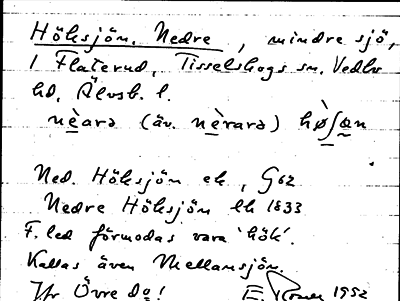 Höksjön, Nedre, mindre sjö,
I Flaterud, Tisselskogs sn. Vedbo
hd, Älvsb. l.
nèarə (äv. nèrarə) hø̀ʃən
Ned. Höksjön ek, G62
Nedre Höksjön lk 1833
F. led förmodas vara 'hök'.
Kallas även Mellansjön.
Jfr Övre do!
E. 1952